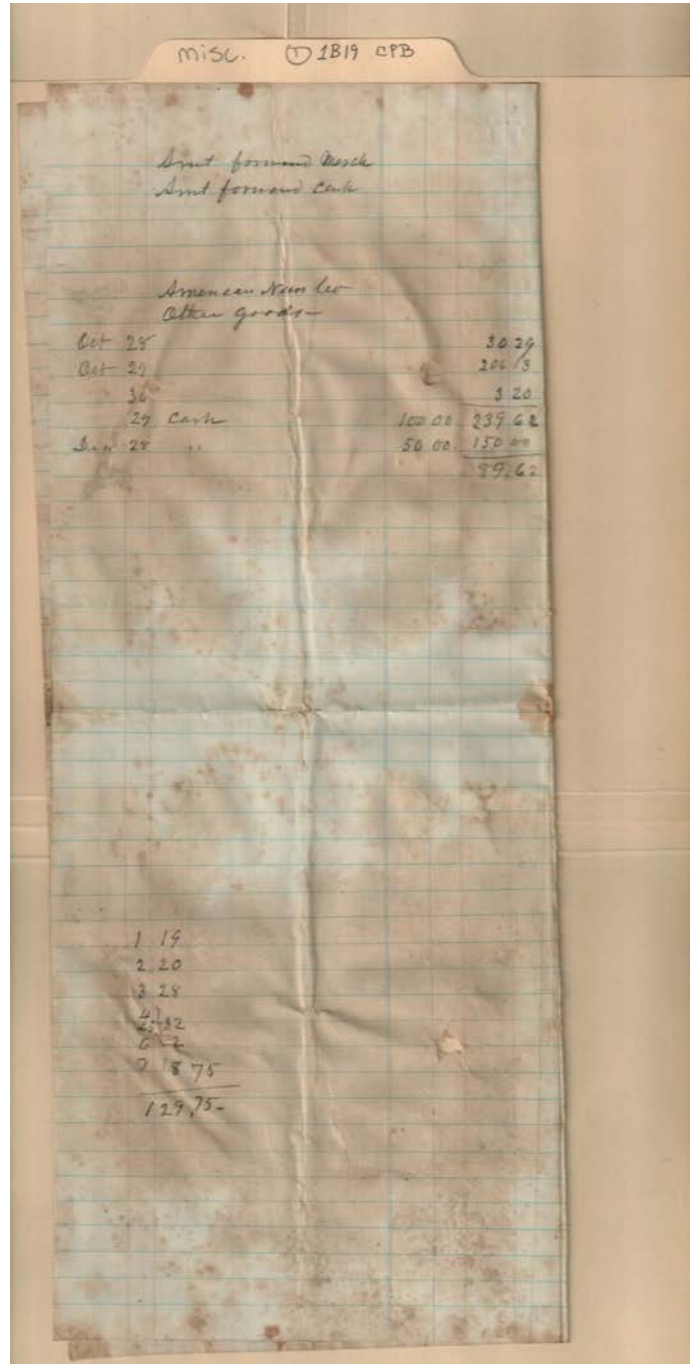 misc. ① 1B19 CPB
Amt forward Merch
Amt forward Cash
American News Co
Other goods
Oct 28 30 29
Oct 29 206 13
30 3 20
29 Cash 100 00 239 62
28 " 50 00 150 00
89,62
1 19
2 20
3 28
32
6 2
7 18 75
129,75